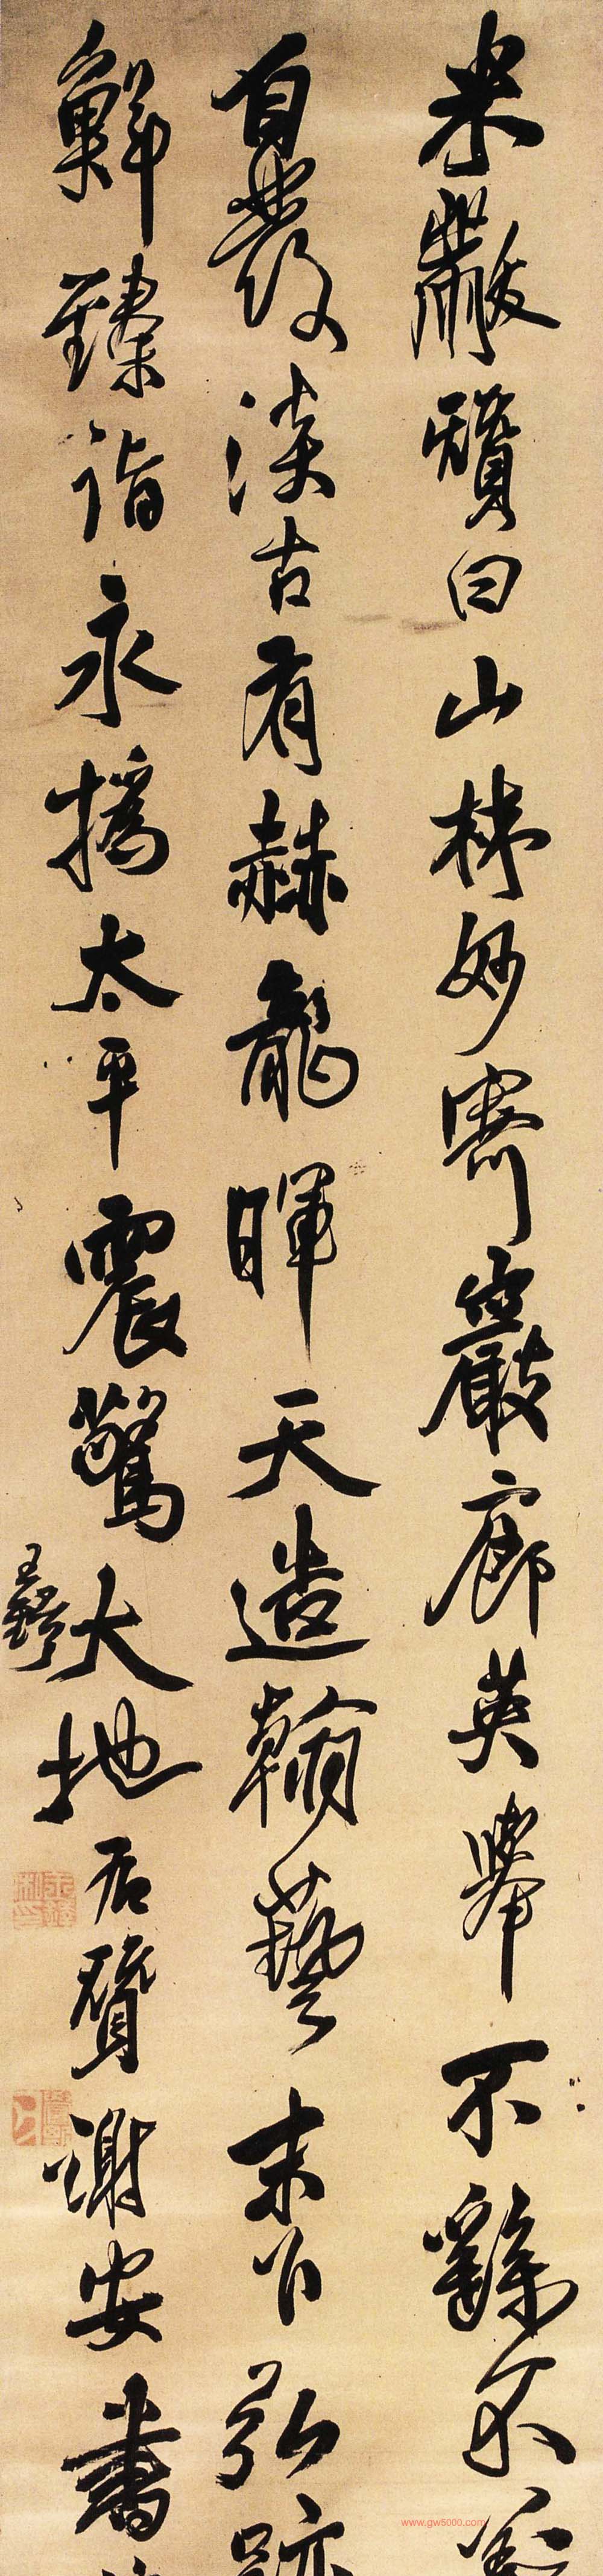 米黻贊曰山林妙寄巖廊英舉不繇不
自發淡古有赫龍暉天造翰藝末日弘跡
鮮臻詣永撝太平震驚大地右贊謝安書
王鐸
www.gw5000.com